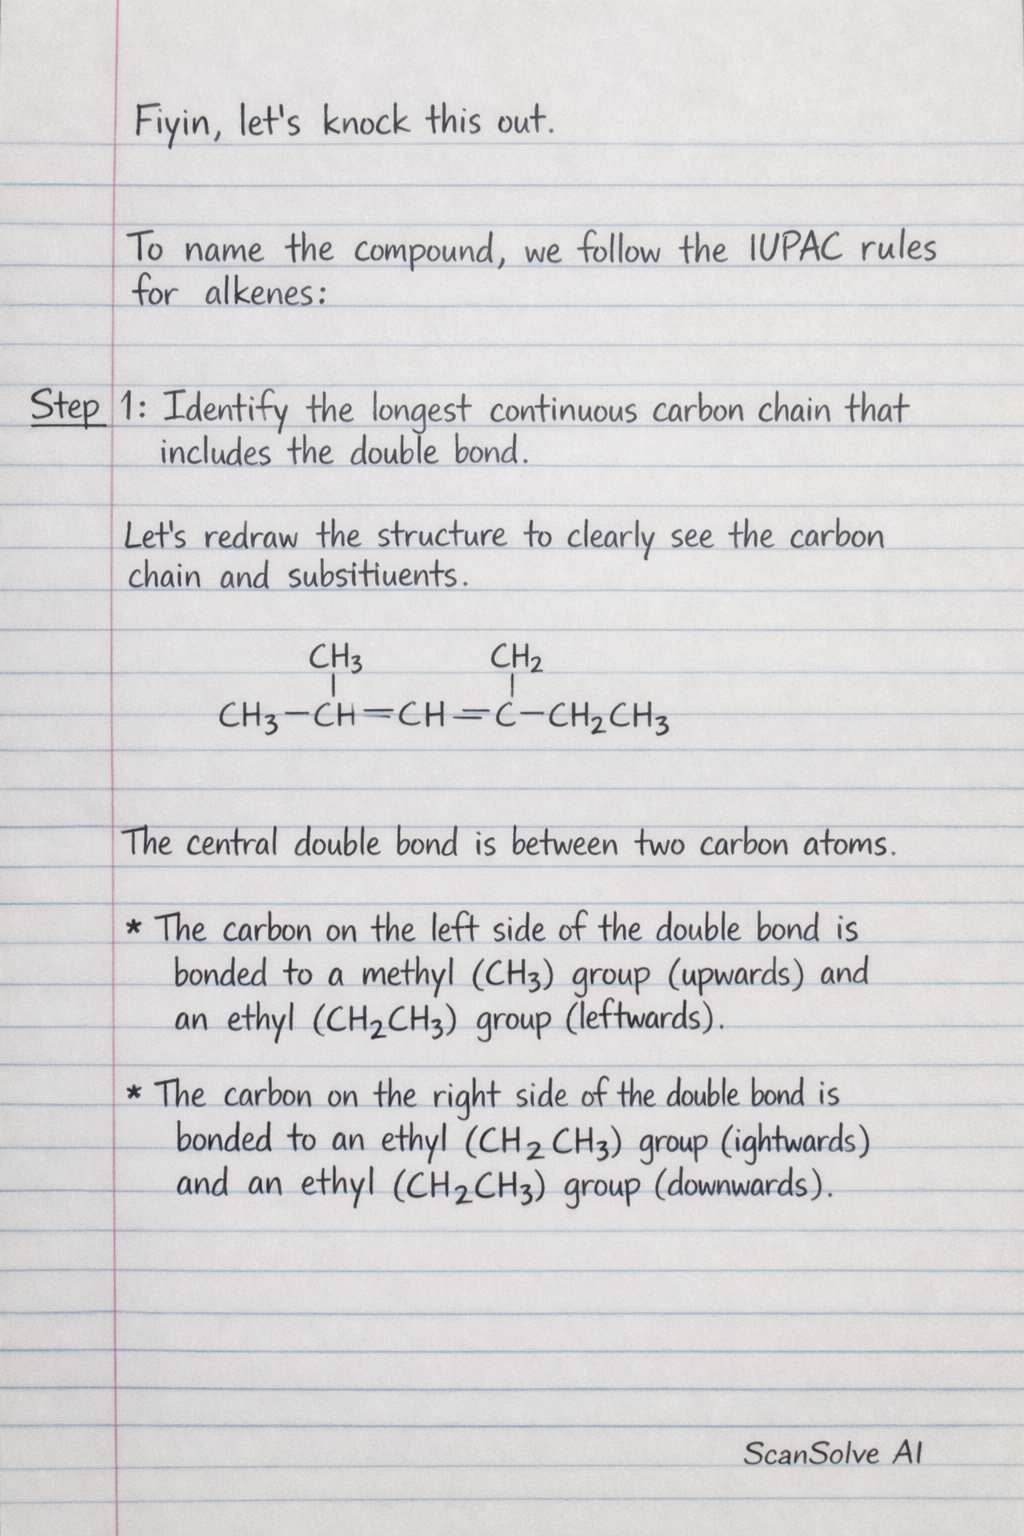 Fiyin, let's knock this out.
To name the compound, we follow the IUPAC rules
for alkenes:
Step 1: Identify the longest continuous carbon chain that
includes the double bond.
Let's redraw the structure to clearly see the carbon
chain and subsitiuents.
CH₃ CH₂
CH₃—CH=CH=C—CH₂CH₃
The central double bond is between two carbon atoms.
* The carbon on the left side of the double bond is
bonded to a methyl (CH₃) group (upwards) and
an ethyl (CH₂CH₃) group (leftwards).
* The carbon on the right side of the double bond is
bonded to an ethyl (CH₂CH₃) group (ightwards)
and an ethyl (CH₂CH₃) group (downwards).
ScanSolve AI